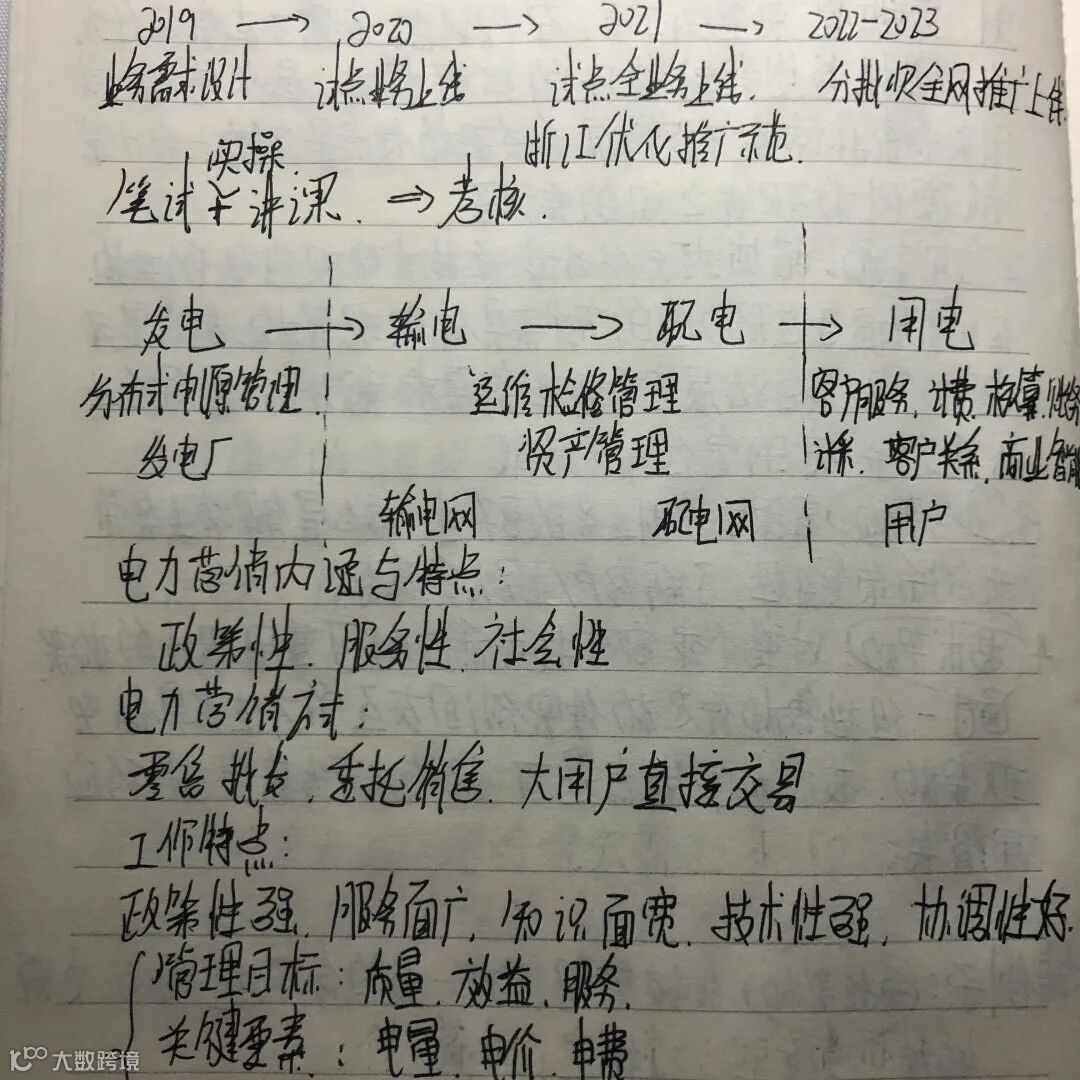 2019 → 2020 → 2021 → 2022-2023
业务需求设计 试点业务上线 试点全业务上线. 分批次全网推广上线
实操. 浙江优化推广示范.
笔试+讲课. ⇒ 考核.
发电 → 输电 → 配电 → 用电
分布式电源管理. 运维检修管理 客户服务、计费、核算、账务
发电厂 资产管理 计采、客户关系、商业智能
输电网 配电网 用户
电力营销内涵与特点:
政策性、服务性、社会性
电力营销方式:
零售批发、委托销售、大用户直接交易
工作特点:
政策性强、服务面广、知识面宽、技术性强、协调性好.
管理目标: 质量、效益、服务.
关键要素: 电量、电价、电费
大数跨境